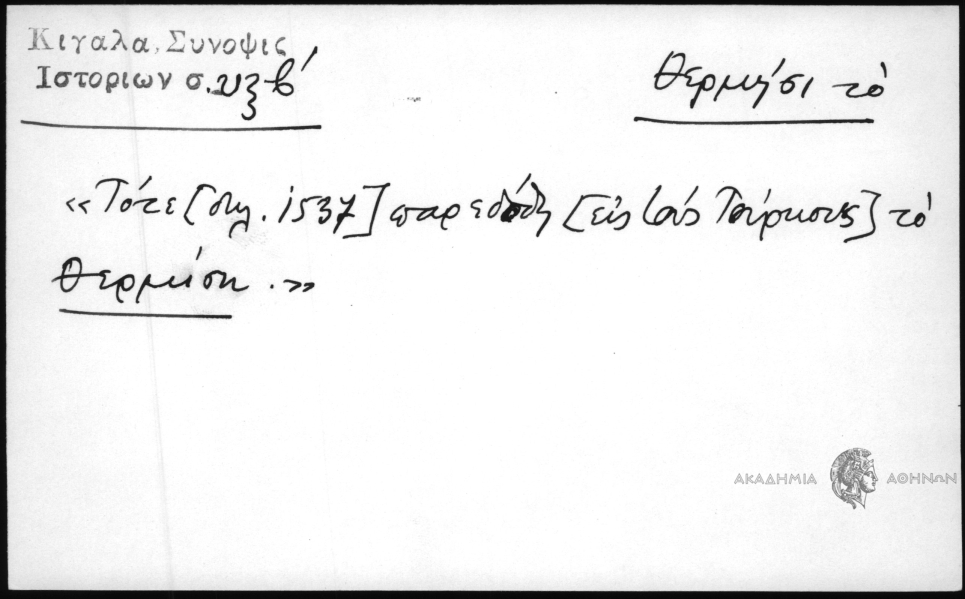 Κιγαλα, Συνοψις
Ιστοριων σ. υξβ΄
Θερμήσι τὸ
«Τότε [δηλ. 1537] παρεδόθη [εἰς τοὺς Τούρκους] τὸ
Θερμήση.»
ΑΚΑΔΗΜΙΑ ΑΘΗΝΩΝ